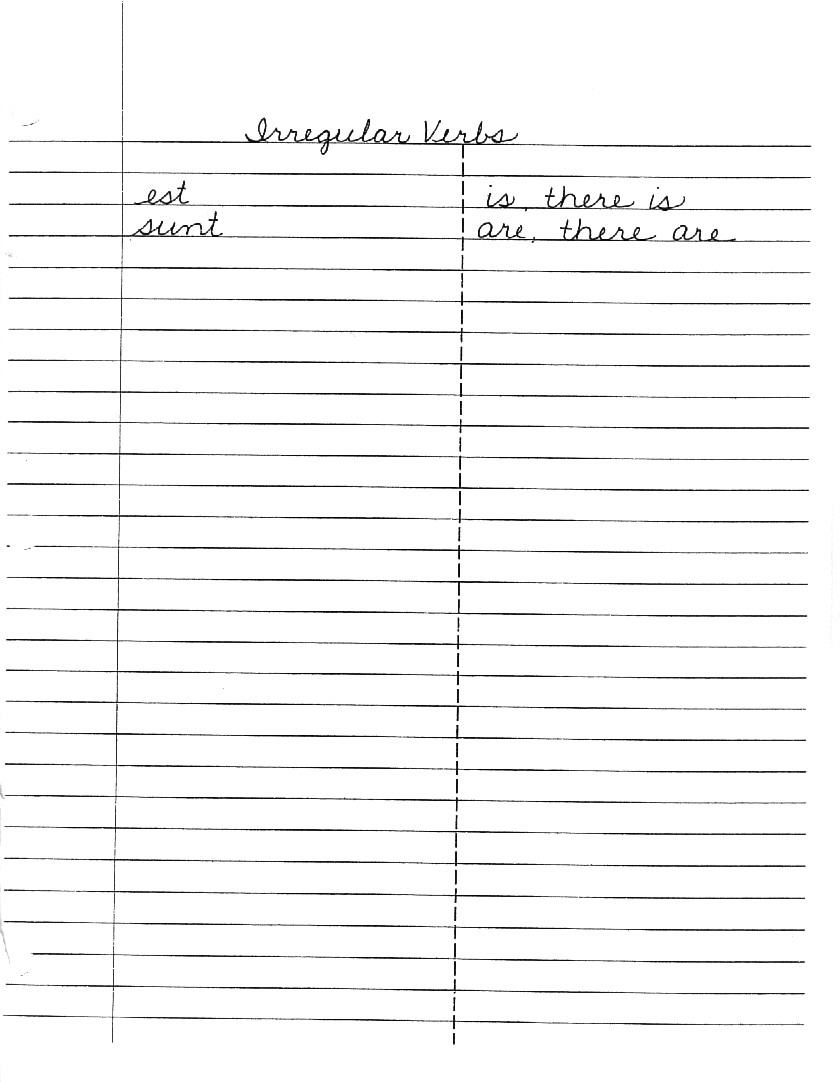 Irregular Verbs
est is, there is
sunt are, there are